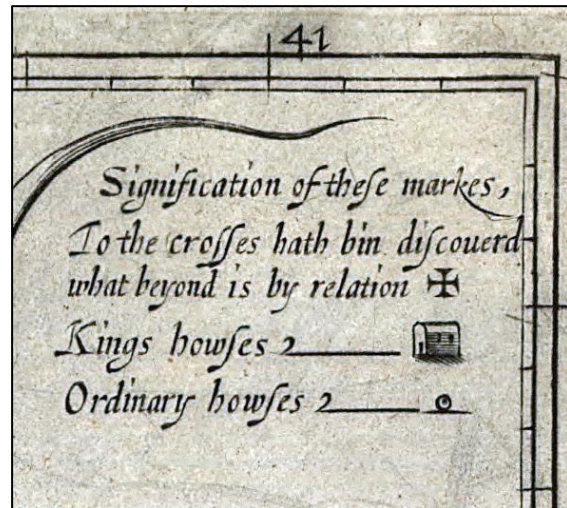 41
Signification of theſe markes,
To the croſſes hath bin diſcouerd
what beyond is by relation ✠
Kings howſes
Ordinary howſes